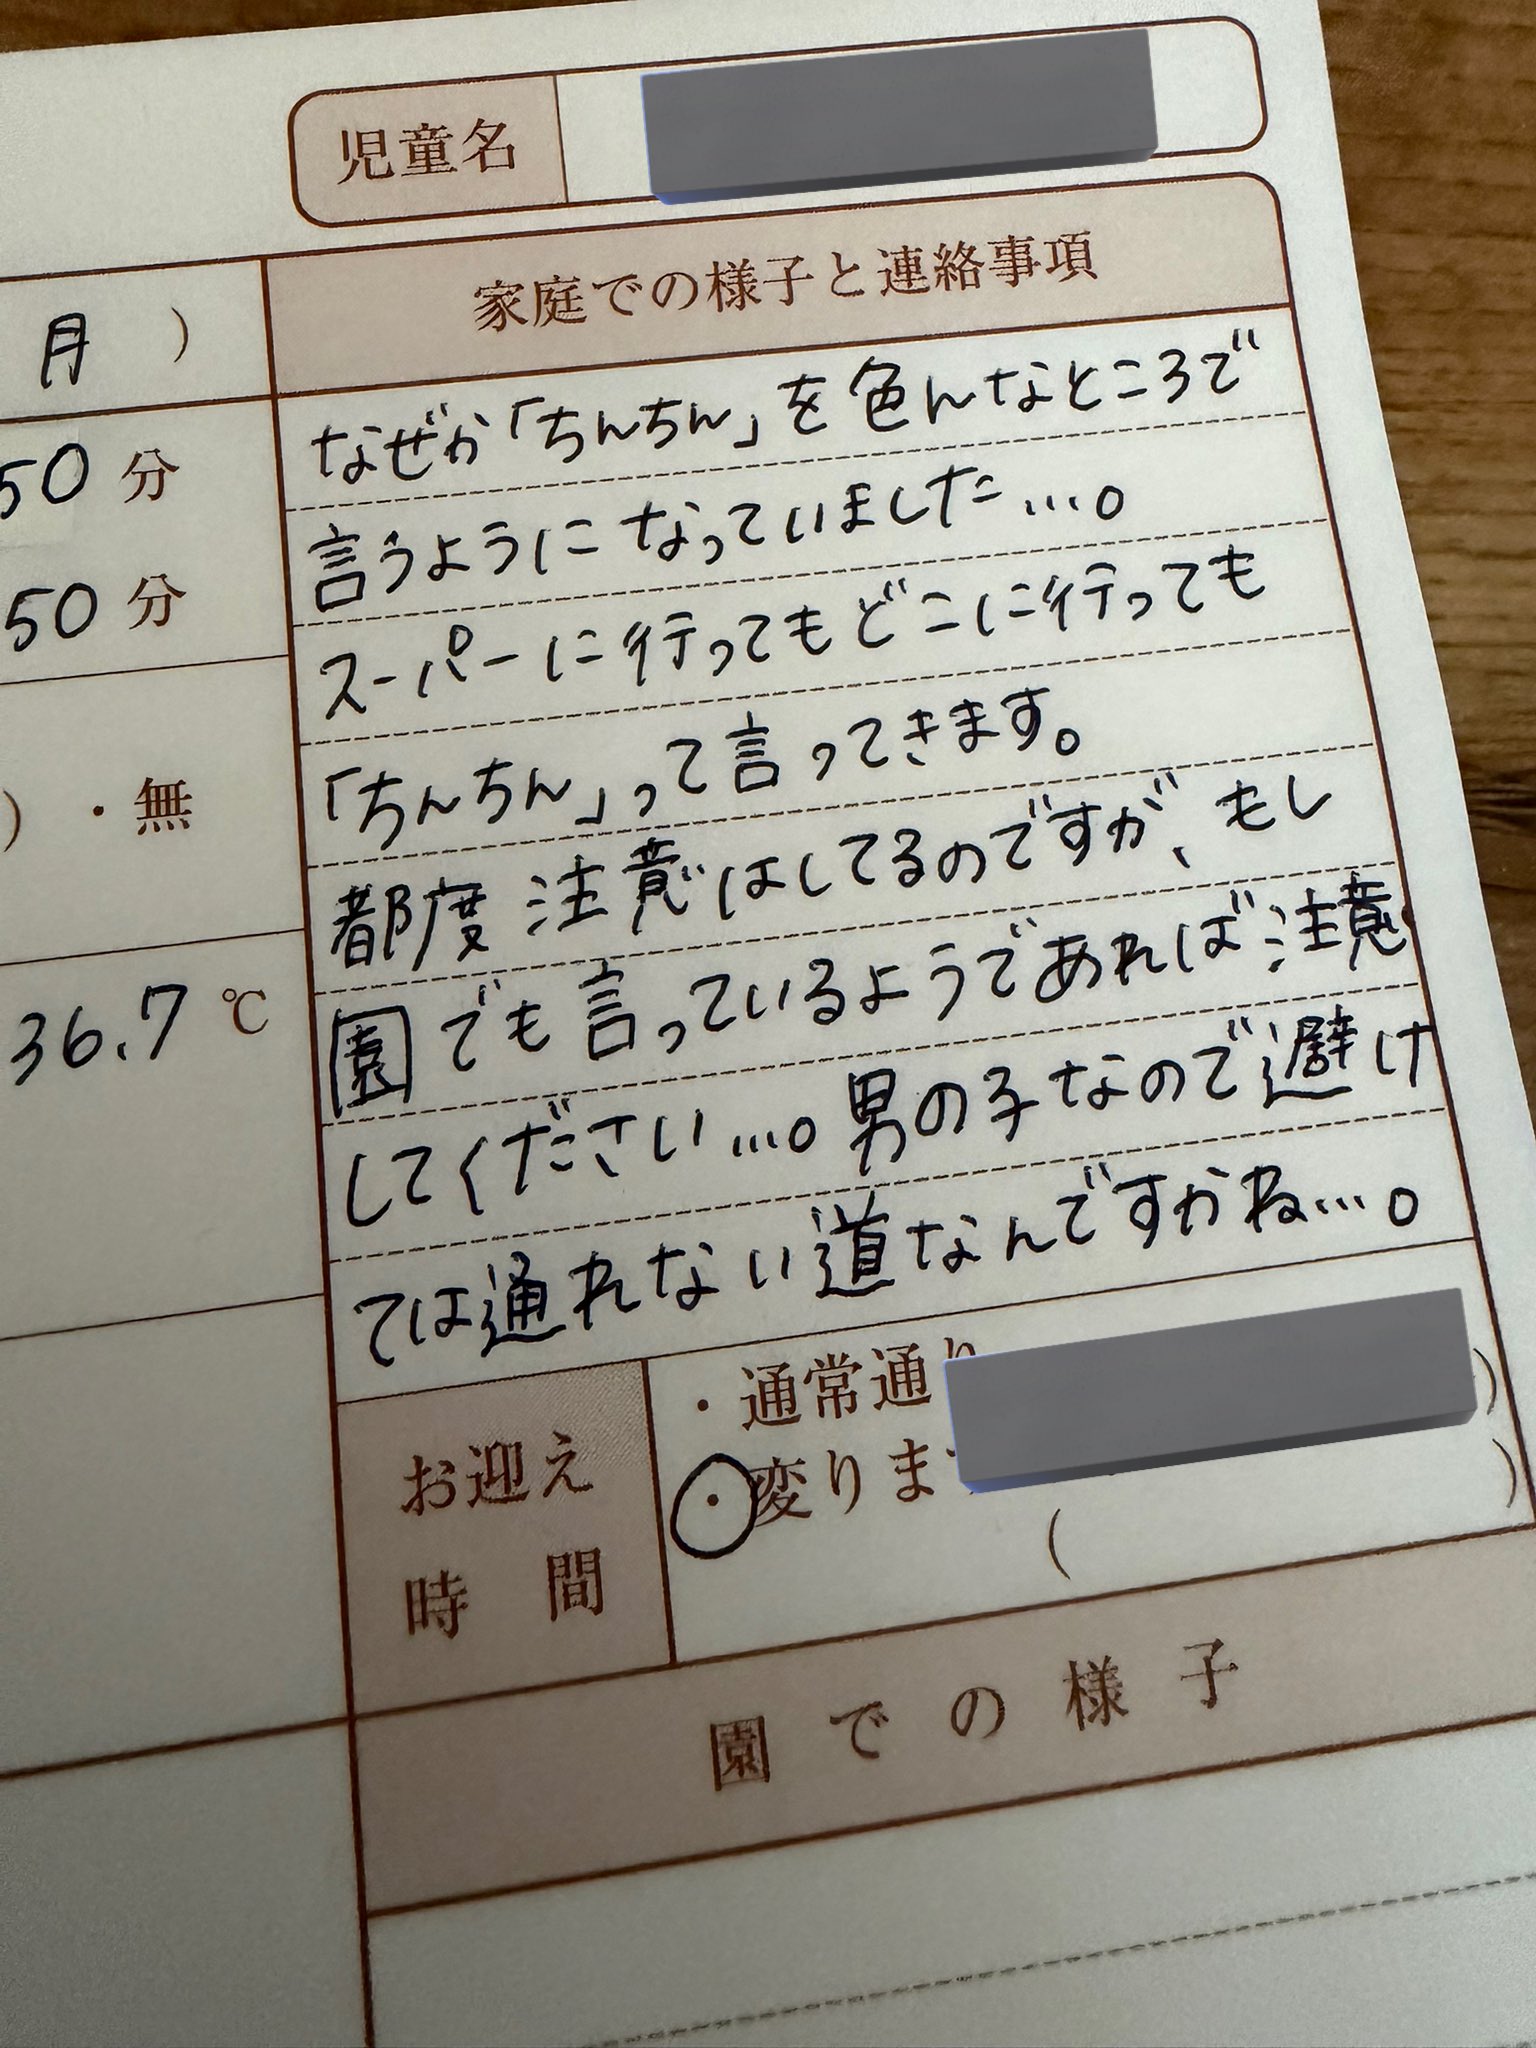 児童名
家庭での様子と連絡事項
月 )
50 分
50 分
) ・無
36.7 ℃
なぜか「ちんちん」を色んなところで
言うようになっていました…。
スーパーに行ってもどこに行っても
「ちんちん」って言ってきます。
都度注意はしてるのですが、もし
園でも言っているようであれば注意
してください…。男の子なので避け
ては通れない道なんですかね…。
お迎え
時 間
・通常通り )
・変りま )
(
園での様子